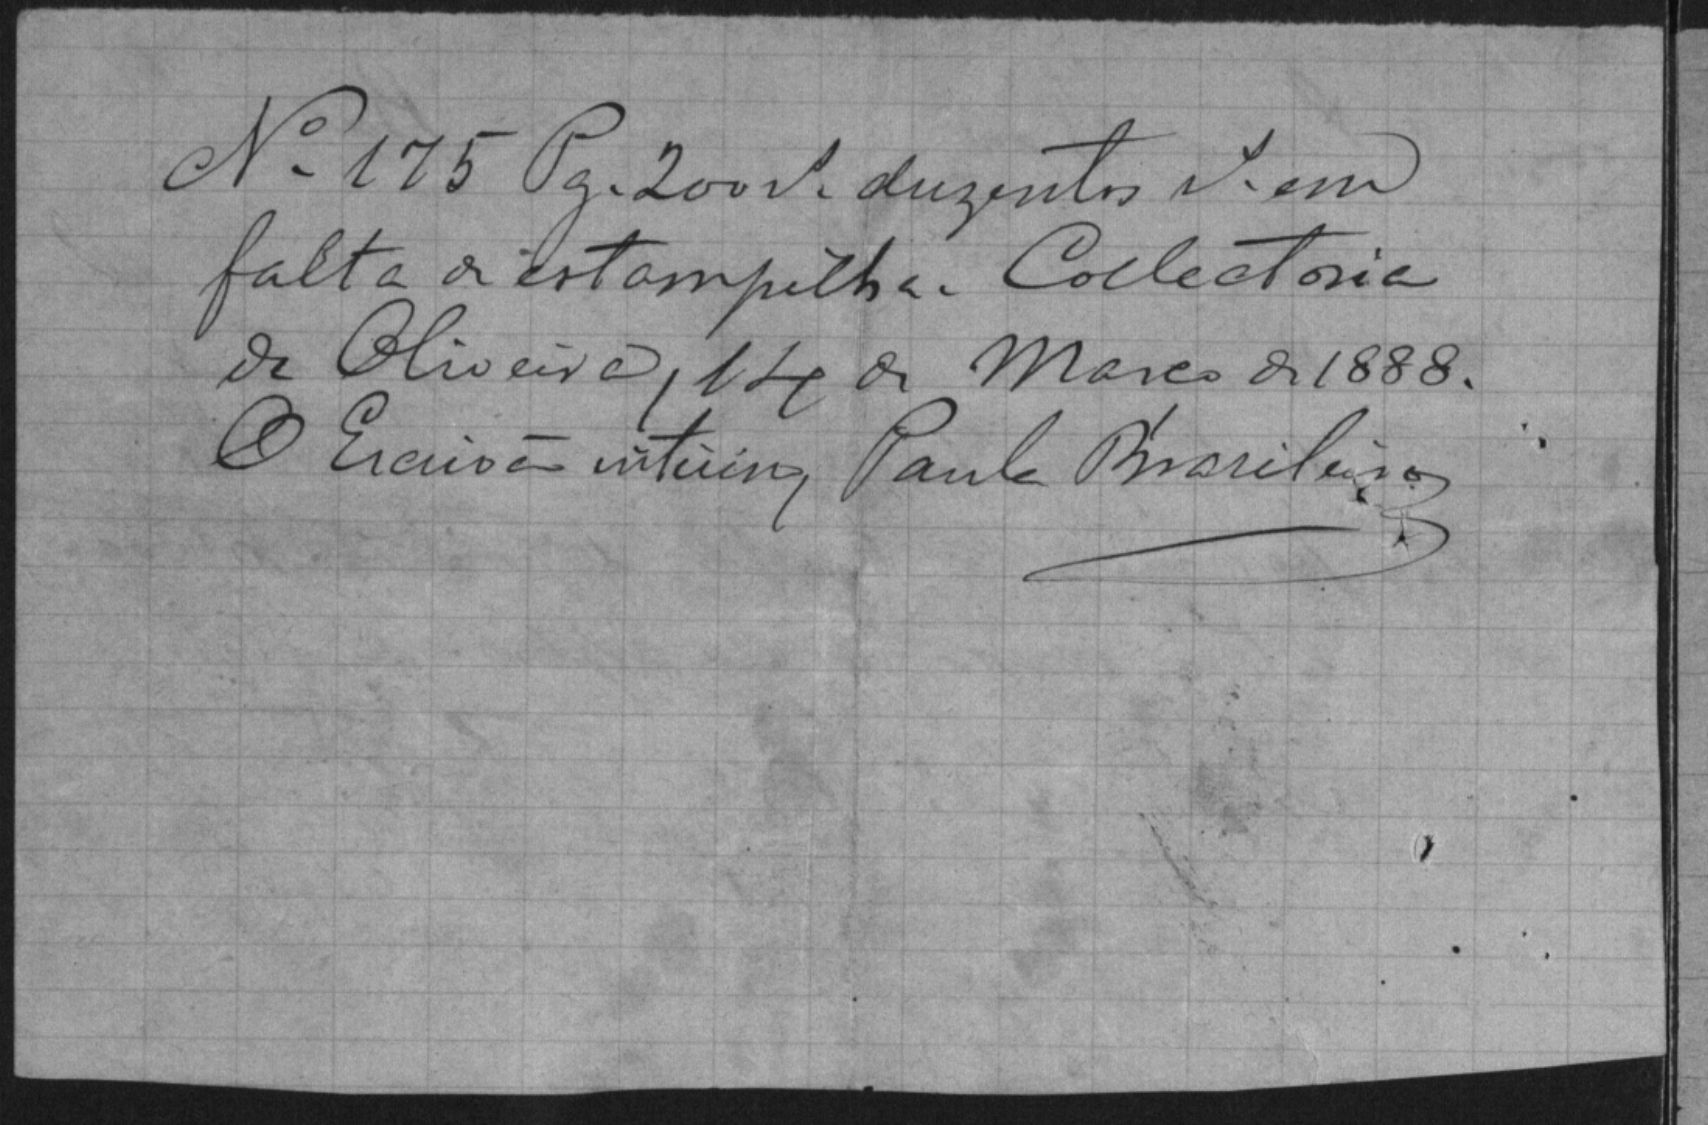 Nº 175 Pg. 200 rs. duzentos rs. em
falta de estampilha. Collectoria
de Oliveira, 14 de Março de 1888.
O Escrivão interino, Paula Brasileiro